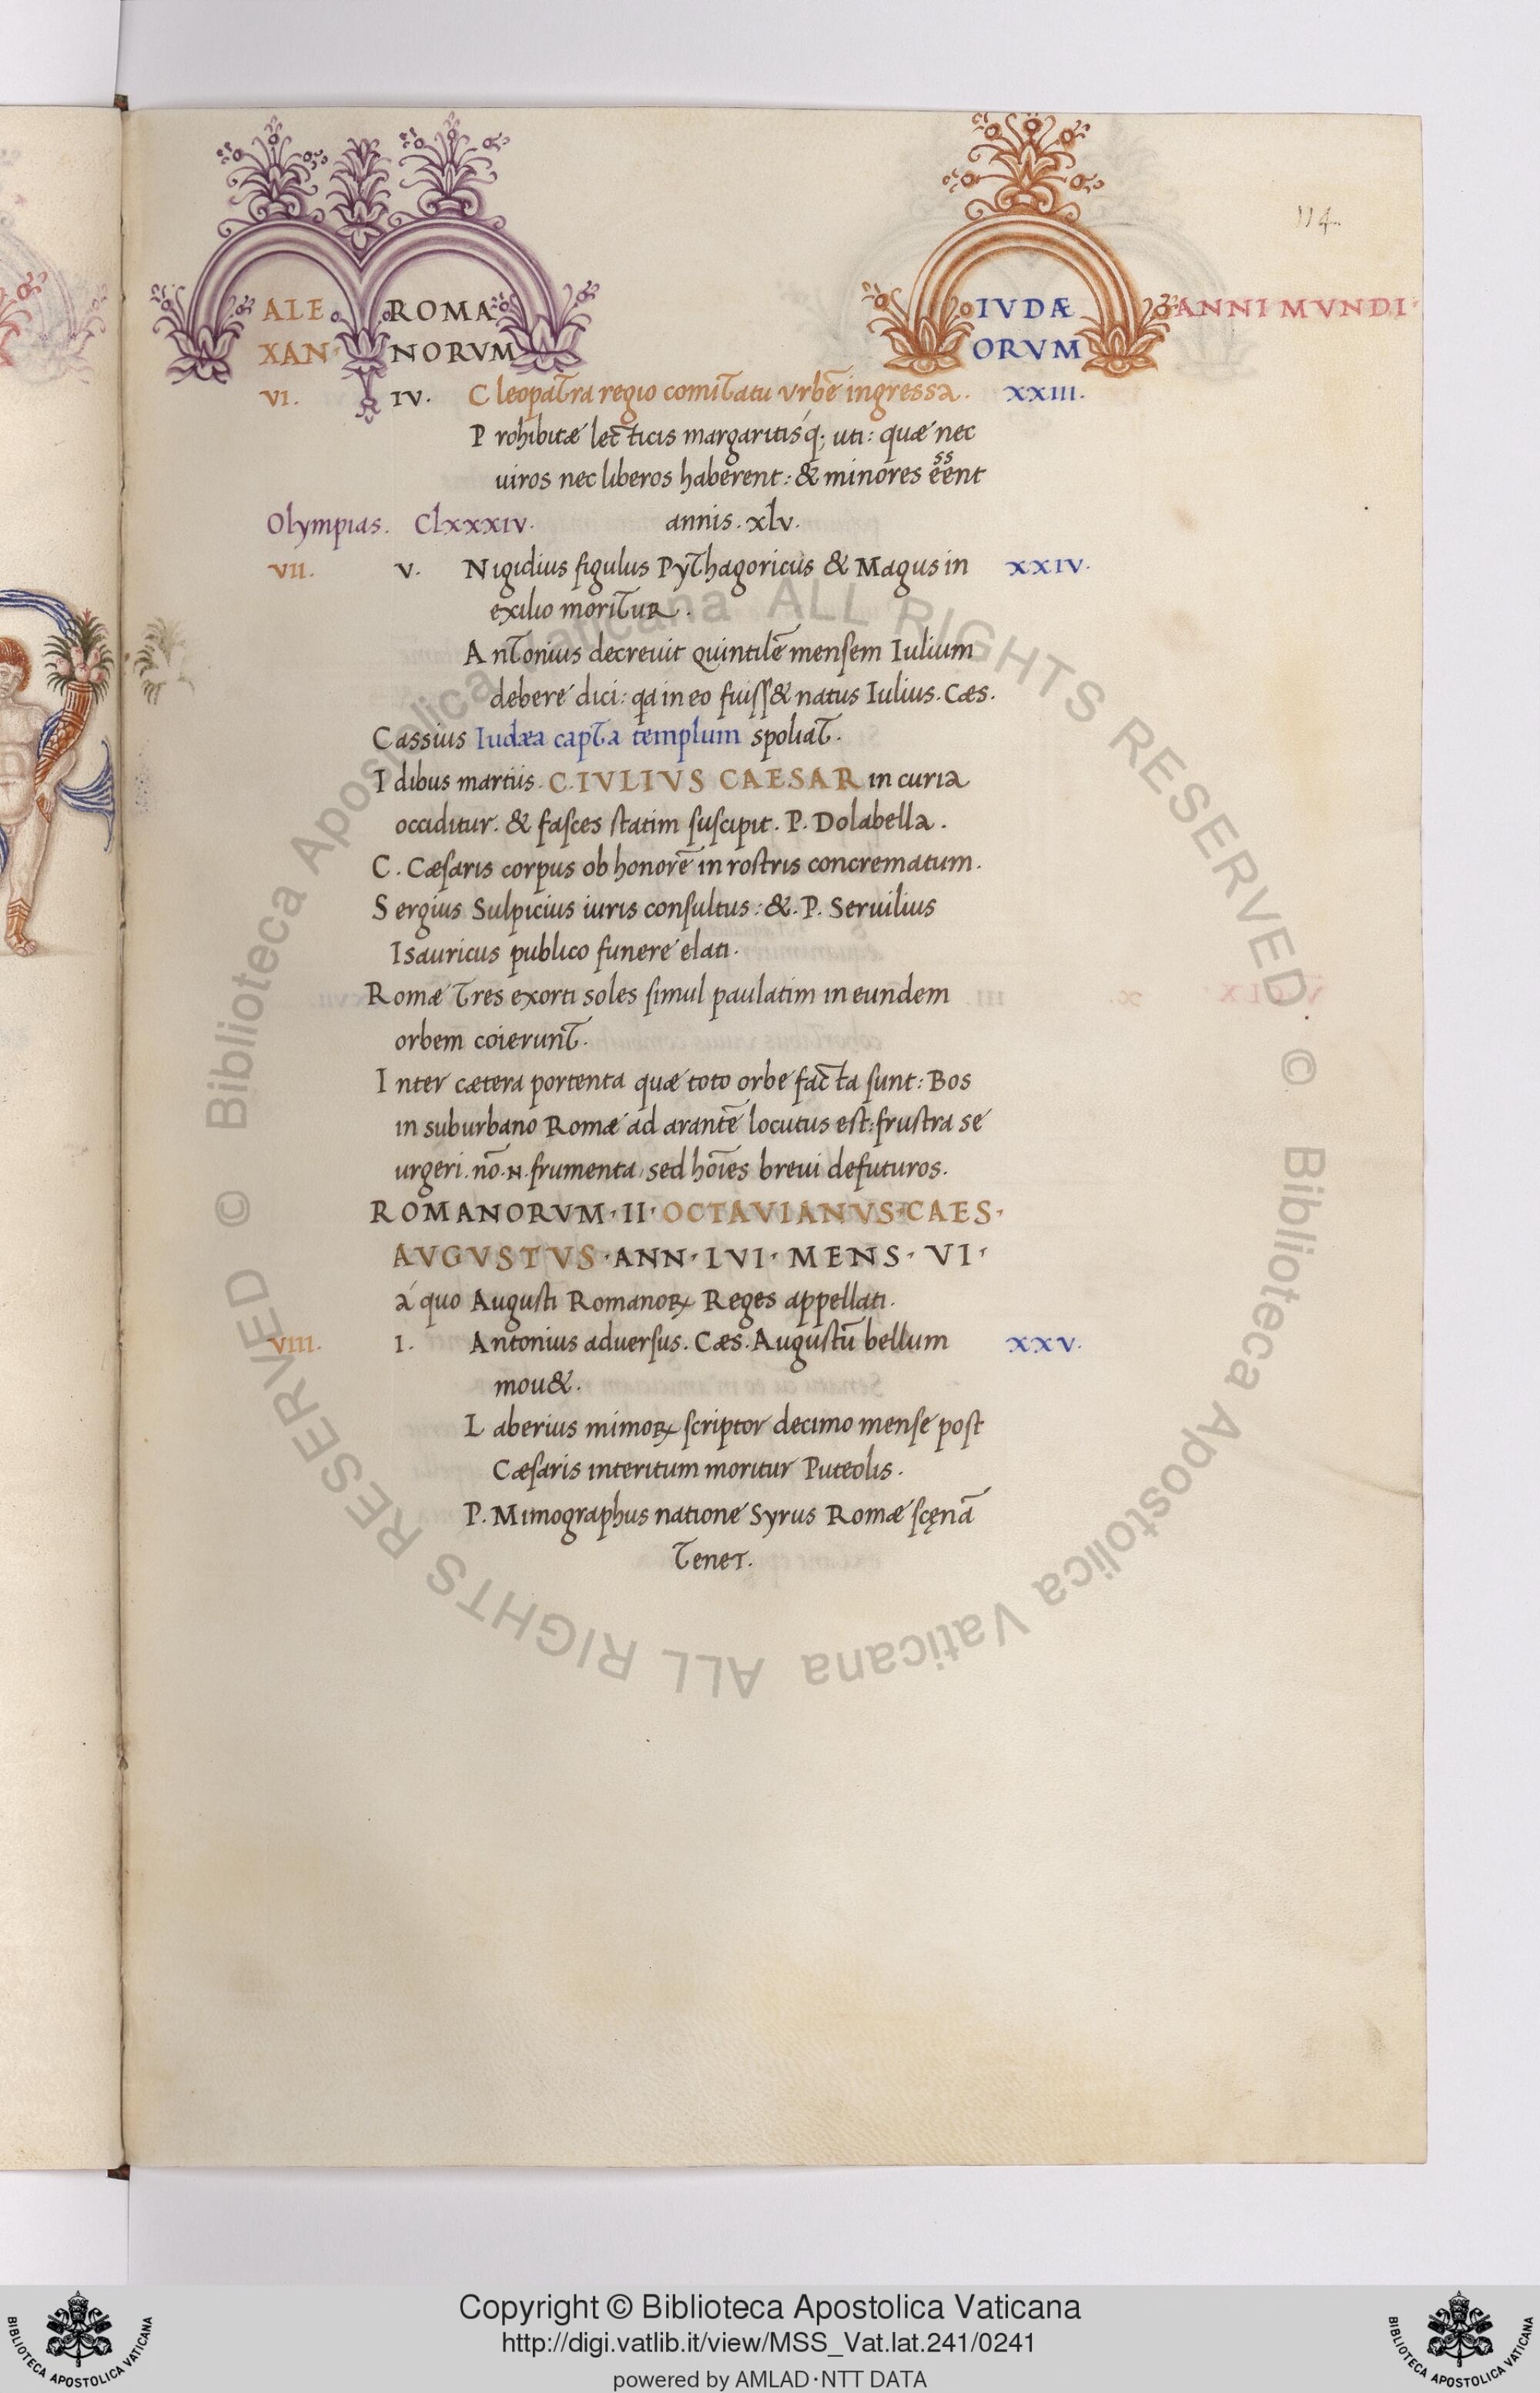 114.
ALE ROMA IVDÆ ANNI MVNDI
XAN NORVM ORVM
VI. IV. Cleopatra regio comitatu vrbē ingressa. XXIII.
Prohibitæ lecticis margaritisq; uti: quæ nec
uiros nec liberos haberent: & minores eēnt
ss
Olympias. ClxxxIv. annis. xlv.
VII. V. Nigidius figulus Pythagoricus & Magus in XXIV.
exilio moritur.
Antonius decreuit Quintilē mensem Iulium
debere dici: qa in eo fuiss& natus Iulius. Cæs.
Cassius Iudæa capta templum spoliat.
Idibus martiis. C. IVLIVS CAESAR in curia
occiditur. & fasces statim suscipit. P. Dolabella.
C. Cæsaris corpus ob honorē in rostris concrematum.
Sergius Sulpicius iuris consultus: &. P. Seruilius
Isauricus publico funere elati.
Romæ Tres exorti soles simul paulatim in eundem
orbem coierunt.
Inter cætera portenta quæ toto orbe facta sunt: Bos
in suburbano Romæ ad arantē locutus est: frustra se
urgeri. nō. N. frumenta, sed hoīes breui defuturos.
ROMANORVM· II· OCTAVIANVS· CAES·
AVGVSTVS· ANN· LVI· MENS· VI·
á quo Augusti Romanoꝝ Reges appellati.
VIII. I. Antonius aduersus. Cæs. Augustū bellum XXV.
mou&.
Laberius mimoꝝ scriptor decimo mense post
Cæsaris interitum moritur Puteolis.
P. Mimographus natione Syrus Romæ scęnā
Tenet.
© Biblioteca Apostolica Vaticana ALL RIGHTS RESERVED © Biblioteca Apostolica Vaticana ALL RIGHTS RESERVED
Copyright © Biblioteca Apostolica Vaticana
http://digi.vatlib.it/view/MSS_Vat.lat.241/0241
powered by AMLAD·NTT DATA
BIBLIOTECA APOSTOLICA VATICANA
BIBLIOTECA APOSTOLICA VATICANA